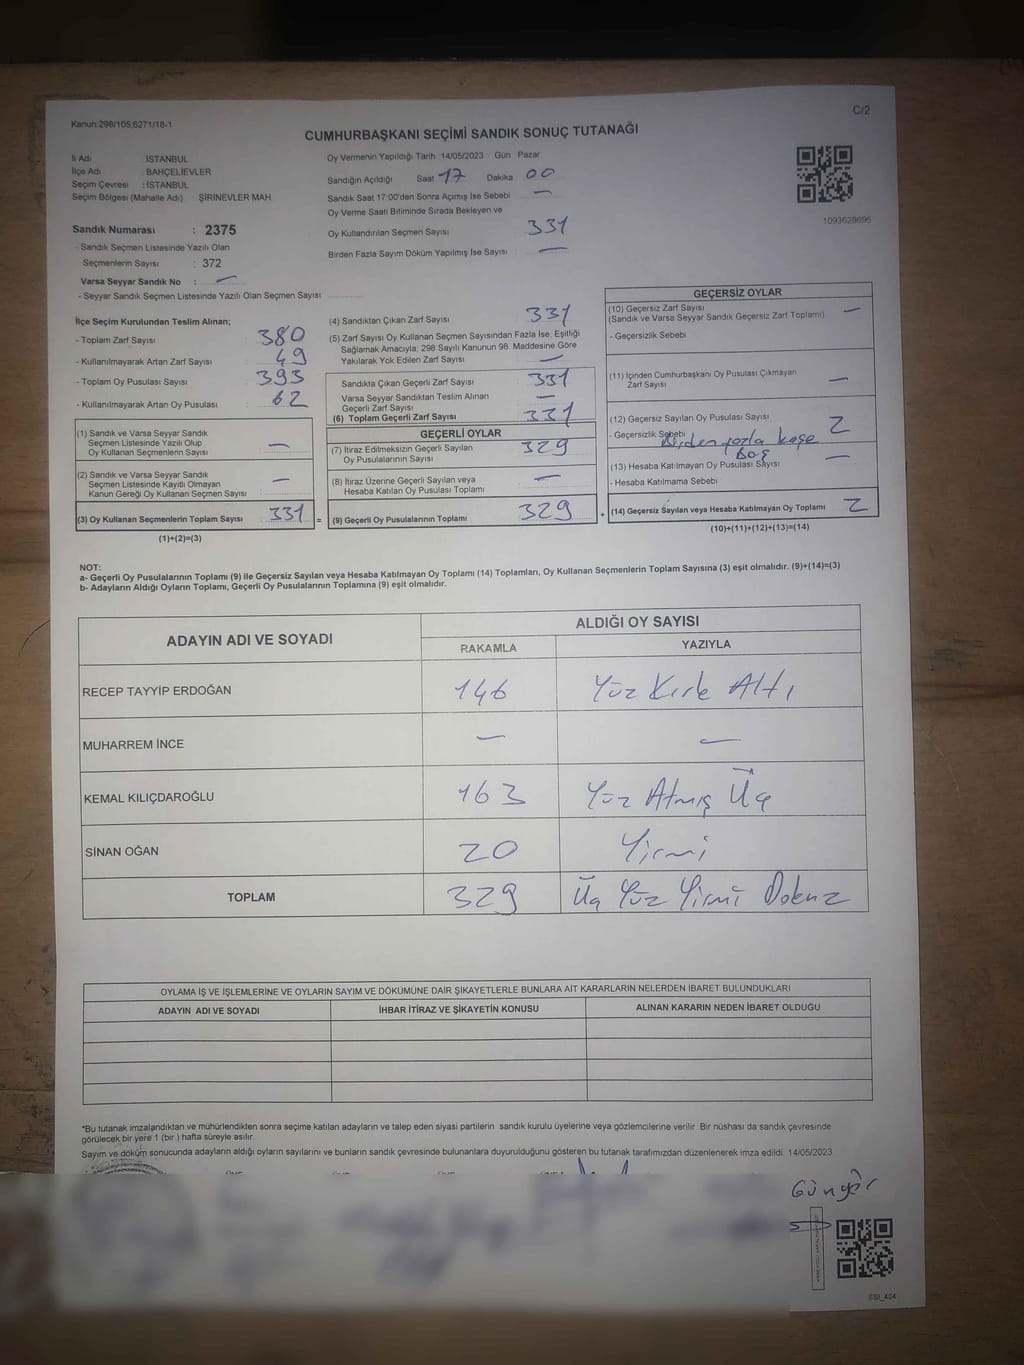 C/2
Kanun:298/105;6271/18-1
CUMHURBAŞKANI SEÇİMİ SANDIK SONUÇ TUTANAĞI
İl Adı : İSTANBUL
İlçe Adı : BAHÇELİEVLER
Seçim Çevresi : İSTANBUL
Seçim Bölgesi (Mahalle Adı) ŞİRİNEVLER MAH
Sandık Numarası : 2375
- Sandık Seçmen Listesinde Yazılı Olan
Seçmenlerin Sayısı : 372
Varsa Seyyar Sandık No : —
- Seyyar Sandık Seçmen Listesinde Yazılı Olan Seçmen Sayısı:
Oy Vermenin Yapıldığı Tarih 14/05/2023 Gün Pazar
Sandığın Açıldığı Saat 17 Dakika 00
Sandık Saat 17:00'den Sonra Açımış İse Sebebi —
Oy Verme Saati Bitiminde Sırada Bekleyen ve
Oy Kullandırılan Seçmen Sayısı 331
Birden Fazla Sayım Döküm Yapılmış İse Sayısı —
1093628696
İlçe Seçim Kurulundan Teslim Alınan;
- Toplam Zarf Sayısı 380
- Kullanılmayarak Artan Zarf Sayısı 49
- Toplam Oy Pusulası Sayısı 393
- Kullanılmayarak Artan Oy Pusulası 62
(1) Sandık ve Varsa Seyyar Sandık
Seçmen Listesinde Yazılı Olup
Oy Kullanan Seçmenlerin Sayısı —
(2) Sandık ve Varsa Seyyar Sandık
Seçmen Listesinde Kayıtlı Olmayan
Kanun Gereği Oy Kullanan Seçmen Sayısı —
(3) Oy Kullanan Seçmenlerin Toplam Sayısı 331 =
(1)+(2)=(3)
(4) Sandıktan Çıkan Zarf Sayısı 331
(5) Zarf Sayısı Oy Kullanan Seçmen Sayısından Fazla İse, Eşitliği
Sağlamak Amacıyla; 298 Sayılı Kanunun 98. Maddesine Göre
Yakılarak Yok Edilen Zarf Sayısı —
Sandıkta Çıkan Geçerli Zarf Sayısı 331
Varsa Seyyar Sandıktan Teslim Alınan
Geçerli Zarf Sayısı —
(6) Toplam Geçerli Zarf Sayısı 331
GEÇERLİ OYLAR
(7) İtiraz Edilmeksizin Geçerli Sayılan
Oy Pusulalarının Sayısı 329
(8) İtiraz Üzerine Geçerli Sayılan veya
Hesaba Katılan Oy Pusulası Toplamı —
(9) Geçerli Oy Pusulalarının Toplamı 329 +
GEÇERSİZ OYLAR
(10) Geçersiz Zarf Sayısı
(Sandık ve Varsa Seyyar Sandık Geçersiz Zarf Toplamı) —
- Geçersizlik Sebebi
(11) İçinden Cumhurbaşkanı Oy Pusulası Çıkmayan
Zarf Sayısı —
(12) Geçersiz Sayılan Oy Pusulası Sayısı 2
- Geçersizlik Sebebi Birden fazla kaşe
Boş
(13) Hesaba Katılmayan Oy Pusulası Sayısı —
- Hesaba Katılmama Sebebi
(14) Geçersiz Sayılan veya Hesaba Katılmayan Oy Toplamı 2
(10)+(11)+(12)+(13)=(14)
NOT:
a- Geçerli Oy Pusulalarının Toplamı (9) ile Geçersiz Sayılan veya Hesaba Katılmayan Oy Toplamı (14) Toplamları, Oy Kullanan Seçmenlerin Toplam Sayısına (3) eşit olmalıdır. (9)+(14)=(3)
b- Adayların Aldığı Oyların Toplamı, Geçerli Oy Pusulalarının Toplamına (9) eşit olmalıdır.
ADAYIN ADI VE SOYADI
ALDIĞI OY SAYISI
RAKAMLA YAZIYLA
RECEP TAYYİP ERDOĞAN 146 Yüz Kırk Altı
MUHARREM İNCE — —
KEMAL KILIÇDAROĞLU 163 Yüz Atmış Üç
SİNAN OĞAN 20 Yirmi
TOPLAM 329 Üç Yüz Yirmi Dokuz
OYLAMA İŞ VE İŞLEMLERİNE VE OYLARIN SAYIM VE DÖKÜMÜNE DAİR ŞİKAYETLERLE BUNLARA AİT KARARLARIN NELERDEN İBARET BULUNDUKLARI
ADAYIN ADI VE SOYADI İHBAR İTİRAZ VE ŞİKAYETİN KONUSU ALINAN KARARIN NEDEN İBARET OLDUĞU
*Bu tutanak imzalandıktan ve mühürlendikten sonra seçime katılan adayların ve talep eden siyasi partilerin sandık kurulu üyelerine veya gözlemcilerine verilir. Bir nüshası da sandık çevresinde
görülecek bir yere 1 (bir ) hafta süreyle asılır.
Sayım ve döküm sonucunda adayların aldığı oyların sayılarını ve bunların sandık çevresinde bulunanlara duyurulduğunu gösteren bu tutanak tarafımızdan düzenlenerek imza edildi. 14/05/2023
Güngör
SSI_404